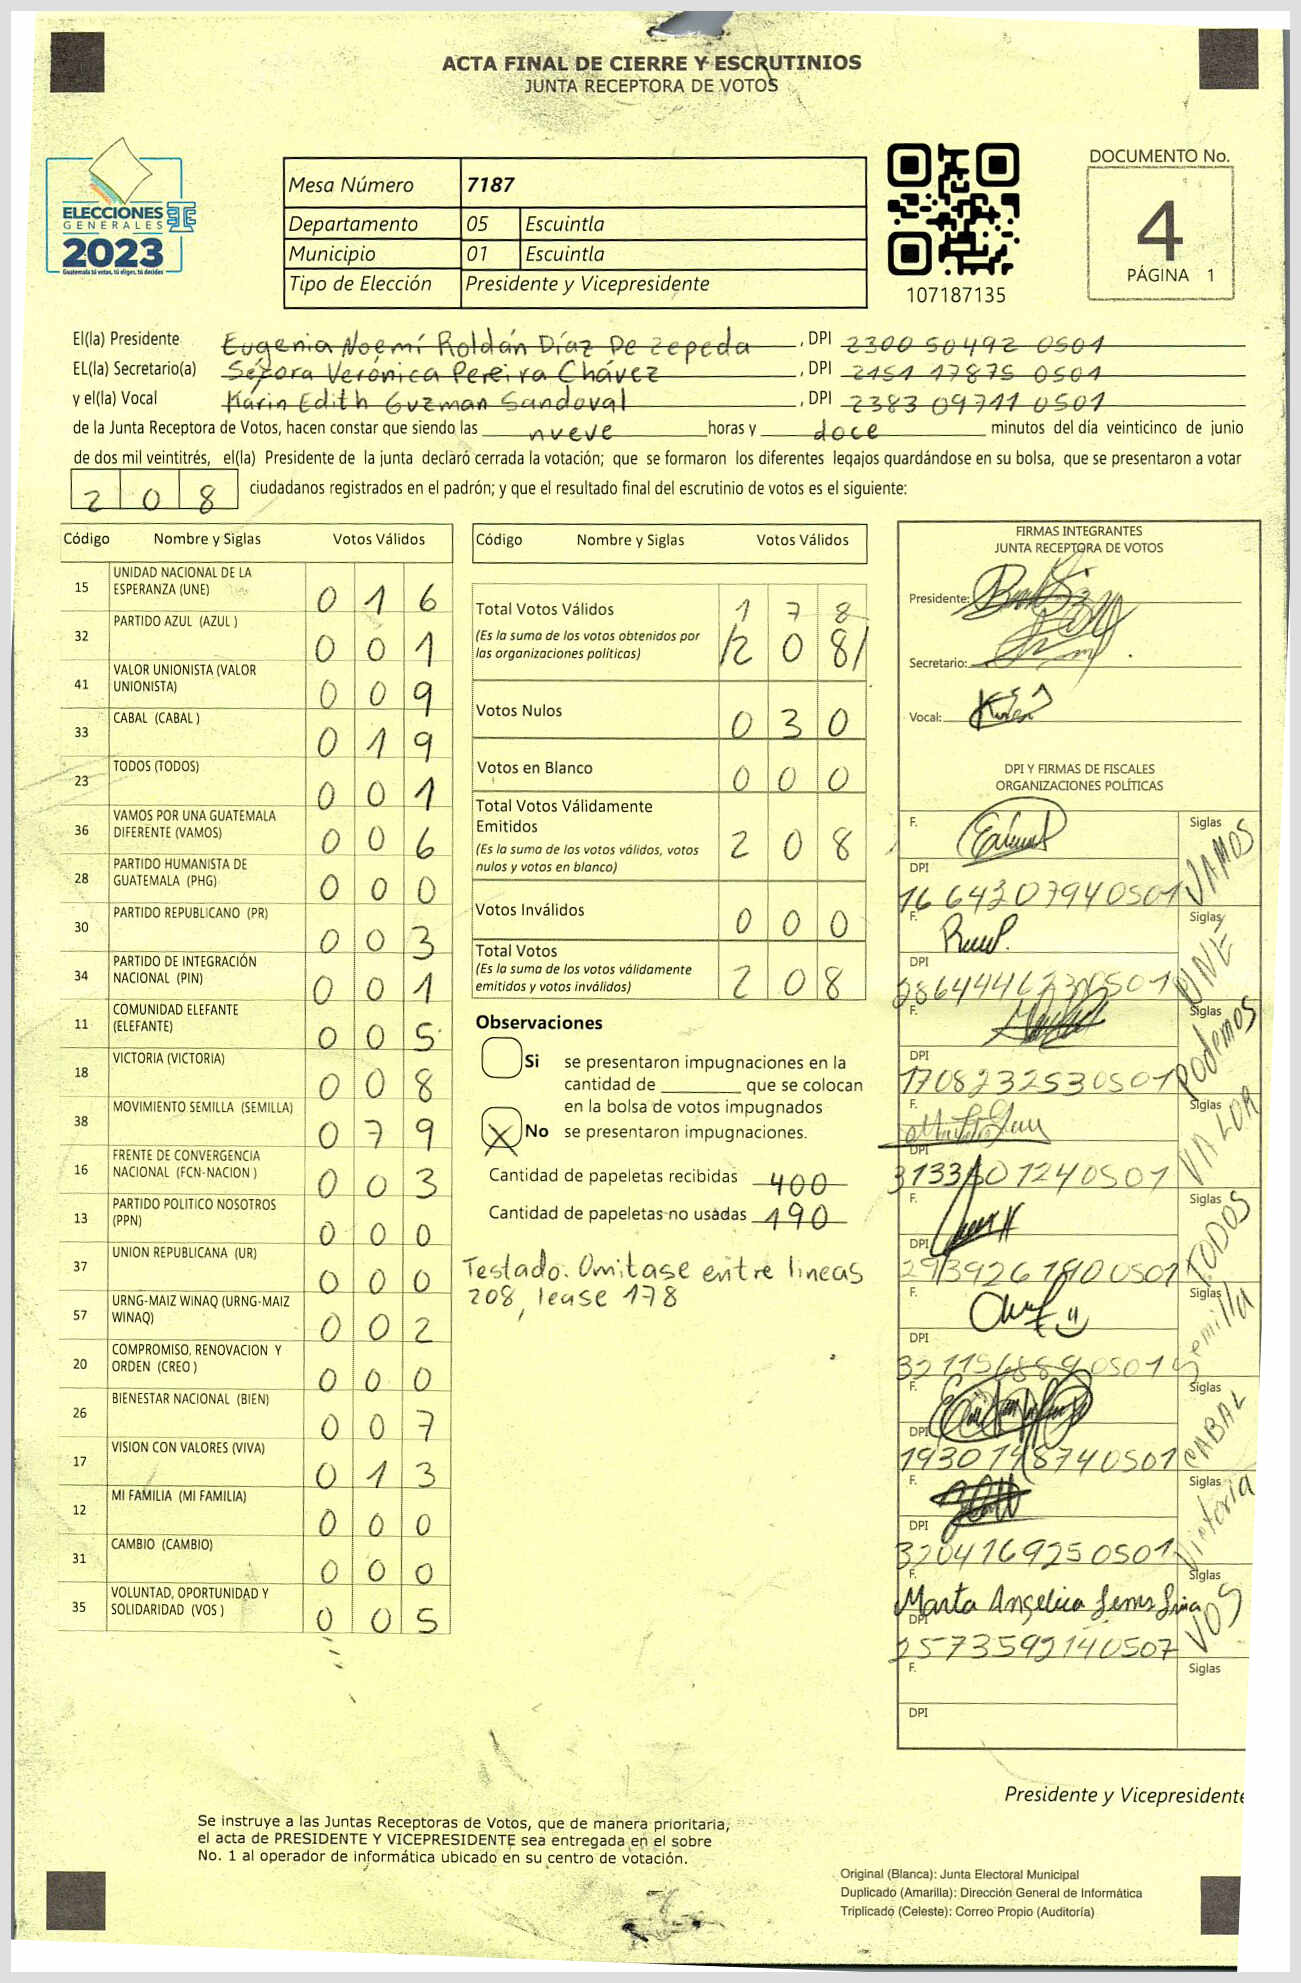 ACTA FINAL DE CIERRE Y ESCRUTINIOS
JUNTA RECEPTORA DE VOTOS
ELECCIONES
GENERALES
2023
Guatemala tú votas, tú eliges, tú decides
Mesa Número 7187
Departamento 05 Escuintla
Municipio 01 Escuintla
Tipo de Elección Presidente y Vicepresidente
107187135
DOCUMENTO No.
4
PÁGINA 1
El(la) Presidente Eugenia Noemí Roldán Díaz De Zepeda , DPI 2300 50492 0501
EL(la) Secretario(a) Séfora Verónica Pereira Chávez , DPI 2151 17875 0501
y el(la) Vocal Karin Edith Guzman Sandoval , DPI 2383 09711 0501
de la Junta Receptora de Votos, hacen constar que siendo las nueve horas y doce minutos del día veinticinco de junio
de dos mil veintitrés, el(la) Presidente de la junta declaró cerrada la votación; que se formaron los diferentes legajos guardándose en su bolsa, que se presentaron a votar
208 ciudadanos registrados en el padrón; y que el resultado final del escrutinio de votos es el siguiente:
Código Nombre y Siglas Votos Válidos
15 UNIDAD NACIONAL DE LA
ESPERANZA (UNE) 0 1 6
32 PARTIDO AZUL (AZUL ) 0 0 1
41 VALOR UNIONISTA (VALOR
UNIONISTA) 0 0 9
33 CABAL (CABAL ) 0 1 9
23 TODOS (TODOS) 0 0 1
36 VAMOS POR UNA GUATEMALA
DIFERENTE (VAMOS) 0 0 6
28 PARTIDO HUMANISTA DE
GUATEMALA (PHG) 0 0 0
30 PARTIDO REPUBLICANO (PR) 0 0 3
34 PARTIDO DE INTEGRACIÓN
NACIONAL (PIN) 0 0 1
11 COMUNIDAD ELEFANTE
(ELEFANTE) 0 0 5
18 VICTORIA (VICTORIA) 0 0 8
38 MOVIMIENTO SEMILLA (SEMILLA) 0 7 9
16 FRENTE DE CONVERGENCIA
NACIONAL (FCN-NACION ) 0 0 3
13 PARTIDO POLITICO NOSOTROS
(PPN) 0 0 0
37 UNION REPUBLICANA (UR) 0 0 0
57 URNG-MAIZ WINAQ (URNG-MAIZ
WINAQ) 0 0 2
20 COMPROMISO, RENOVACION Y
ORDEN (CREO ) 0 0 0
26 BIENESTAR NACIONAL (BIEN) 0 0 7
17 VISION CON VALORES (VIVA) 0 1 3
12 MI FAMILIA (MI FAMILIA) 0 0 0
31 CAMBIO (CAMBIO) 0 0 0
35 VOLUNTAD, OPORTUNIDAD Y
SOLIDARIDAD (VOS ) 0 0 5
Código Nombre y Siglas Votos Válidos
Total Votos Válidos 1 7 8
(Es la suma de los votos obtenidos por
las organizaciones políticas) /2 0 8/
Votos Nulos 0 3 0
Votos en Blanco 0 0 0
Total Votos Válidamente
Emitidos
(Es la suma de los votos válidos, votos
nulos y votos en blanco) 2 0 8
Votos Inválidos 0 0 0
Total Votos
(Es la suma de los votos válidamente
emitidos y votos inválidos) 2 0 8
Observaciones
Si se presentaron impugnaciones en la
cantidad de ________ que se colocan
en la bolsa de votos impugnados
X No se presentaron impugnaciones.
Cantidad de papeletas recibidas 400
Cantidad de papeletas no usadas 190
Testado. Omitase entre lineas
208, lease 178
FIRMAS INTEGRANTES
JUNTA RECEPTORA DE VOTOS
Presidente:
Secretario:
Vocal:
DPI Y FIRMAS DE FISCALES
ORGANIZACIONES POLÍTICAS
F. Siglas VAMOS
DPI
1664307940501
F. Siglas UNE
DPI
F. Siglas Podemos
DPI
1708232530501
F. Siglas VALOR
DPI
F. Siglas TODOS
DPI
F. Siglas Semilla
DPI
F. Siglas CABAL
DPI
F. Siglas Victoria
DPI
3204169250501
F. Marta Angelica Siglas VOS
DPI
2573592140507
F. Siglas
DPI
Presidente y Vicepresidente
Se instruye a las Juntas Receptoras de Votos, que de manera prioritaria,
el acta de PRESIDENTE Y VICEPRESIDENTE sea entregada en el sobre
No. 1 al operador de informática ubicado en su centro de votación.
Original (Blanca): Junta Electoral Municipal
Duplicado (Amarilla): Dirección General de Informática
Triplicado (Celeste): Correo Propio (Auditoría)